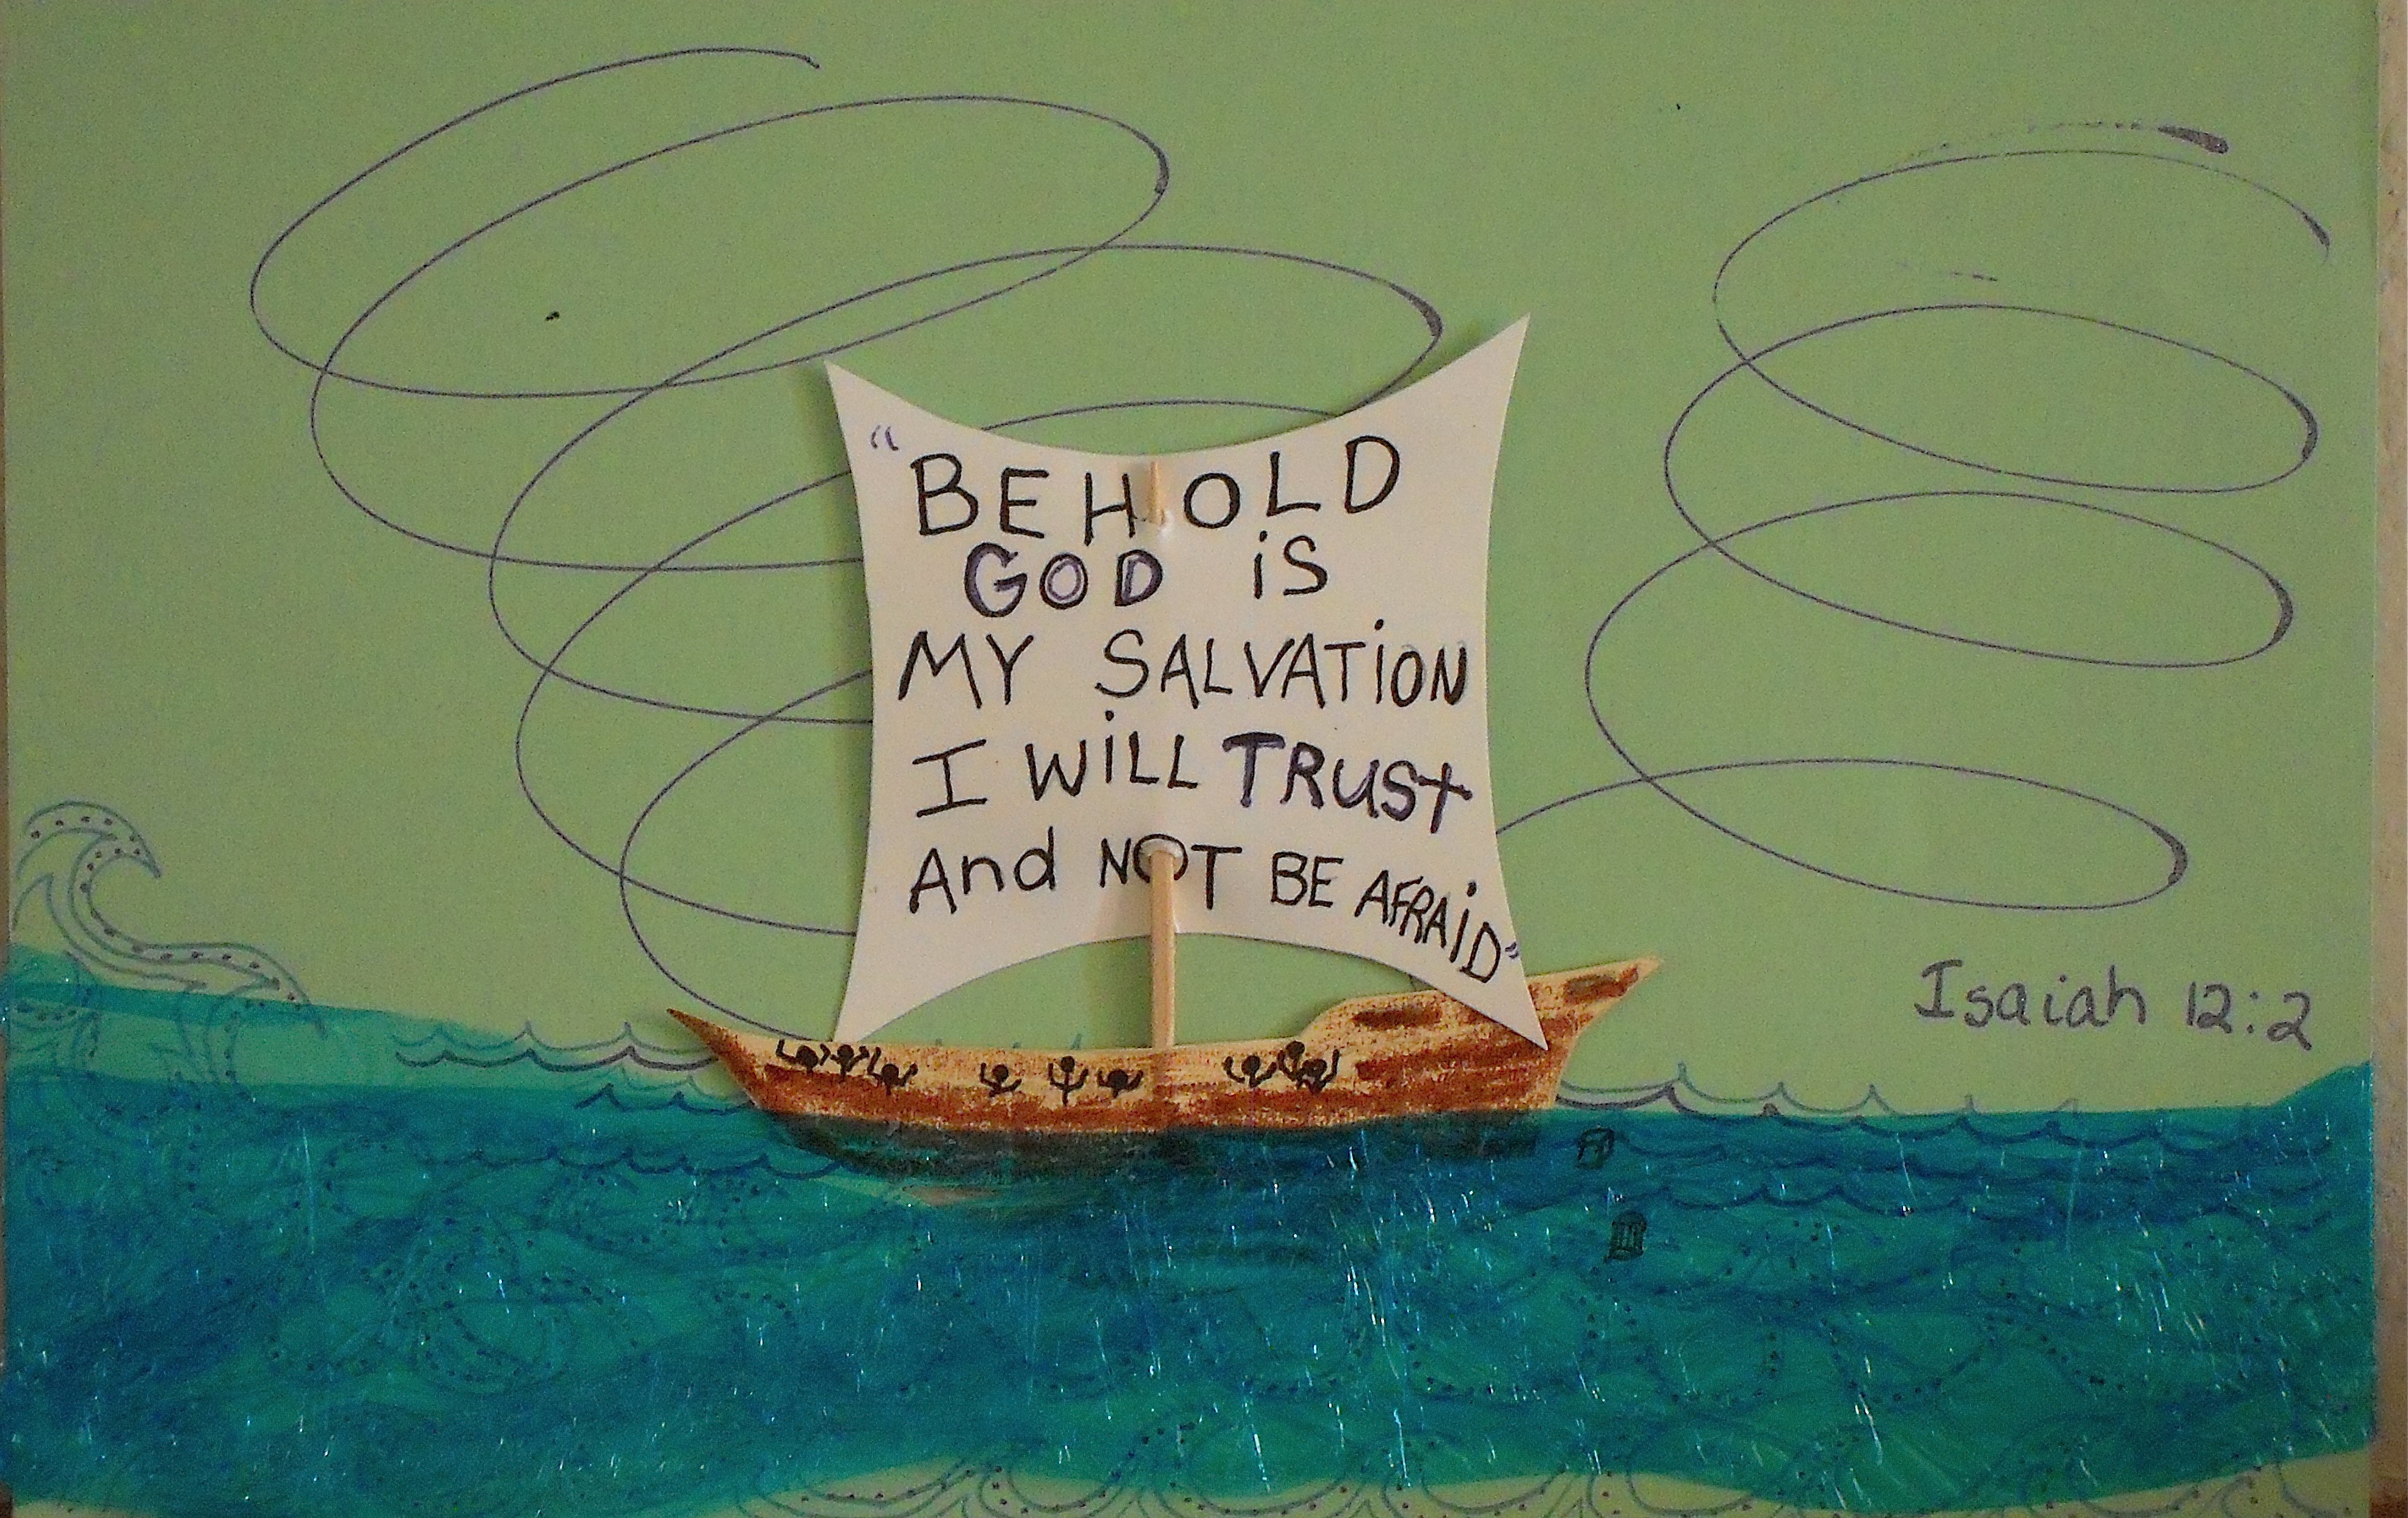 "BEHOLD
GOD iS
MY SALVATiON
I WiLL TRUSt
And NOT BE AFRAiD"
Isaiah 12:2